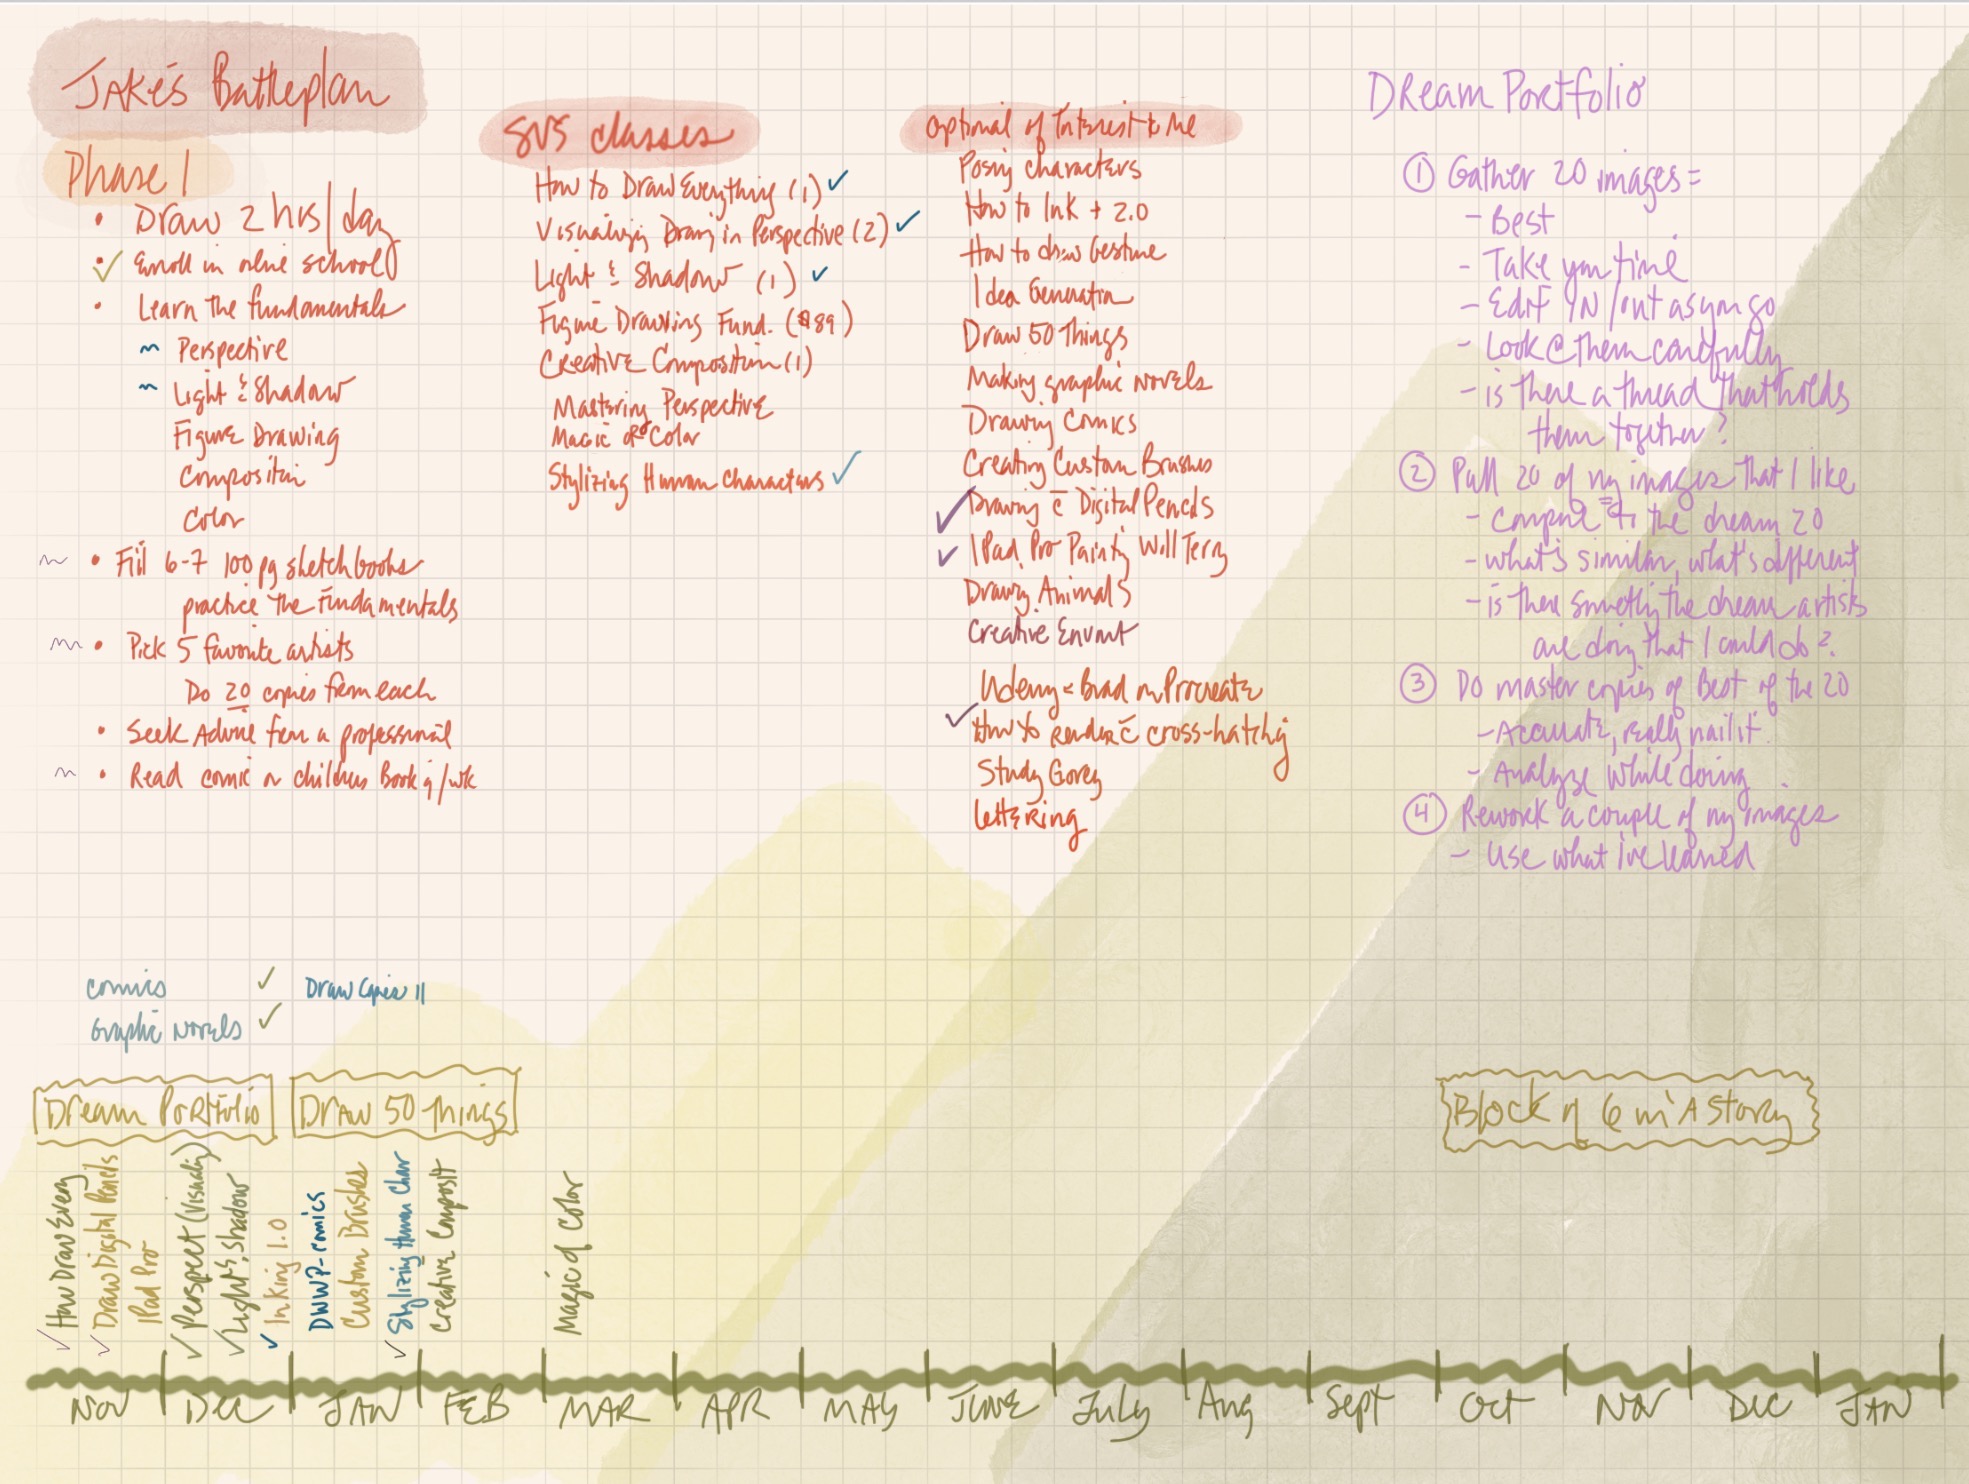 Jake's Battleplan
Phase 1
• Draw 2 hrs/day
• Enroll in online school
• Learn the fundamentals
~ Perspective
~ Light & Shadow
Figure Drawing
Composition
Color
• Fill 6-7 100 pg sketchbooks
practice the fundamentals
• Pick 5 favorite artists
Do 20 copies from each
• Seek Advice from a professional
• Read comic or childrens Book q/wk
SVS classes
How to Draw Everything (1) ✓
Visualizing Drawing in Perspective (2) ✓
Light & Shadow (1) ✓
Figure Drawing Fund. ($89)
Creative Composition (1)
Mastering Perspective
Magic of Color
Stylizing Human Characters ✓
Optional of Interest to Me
Posing characters
How to Ink + 2.0
How to draw Gesture
Idea Generation
Draw 50 Things
Making graphic novels
Drawing Comics
Creating Custom Brushes
✓ Drawing c̄ Digital Pencils
✓ IPad Pro Painting Will Terry
Drawing Animals
Creative Envmt
Udemy < Brad on Procreate
✓ How to Render c̄ cross-hatching
Study Gorey
Lettering
Dream Portfolio
① Gather 20 images =
- Best
- Take your time
- Edit IN/out as you go
- Look @ them carefully
- is there a thread that holds
them together?
② Pull 20 of my images that I like
- compare to the dream 20
- what's similar, what's different
- is there something the dream artists
are doing that I could do?
③ Do master copies of Best of the 20
- Accurate, really nail it
- Analyze while doing
④ Rework a couple of my images
- Use what I've learned
Comics ✓
Graphic Novels ✓
Draw Copies 11
Dream Portfolio
Draw 50 things
Block of 6 in a Story
✓ How Draw Every
✓ Draw Digital Pencils
IPad Pro
✓ Perspect (Visualiz)
✓ Light & Shadow
✓ Inking 1.0
DWWP-comics
Custom Brushes
✓ Stylizing Human Char
Creative Composit
Magic of Color
Nov Dec JAN FEB MAR APR MAY JUNE July Aug Sept Oct Nov Dec JAN